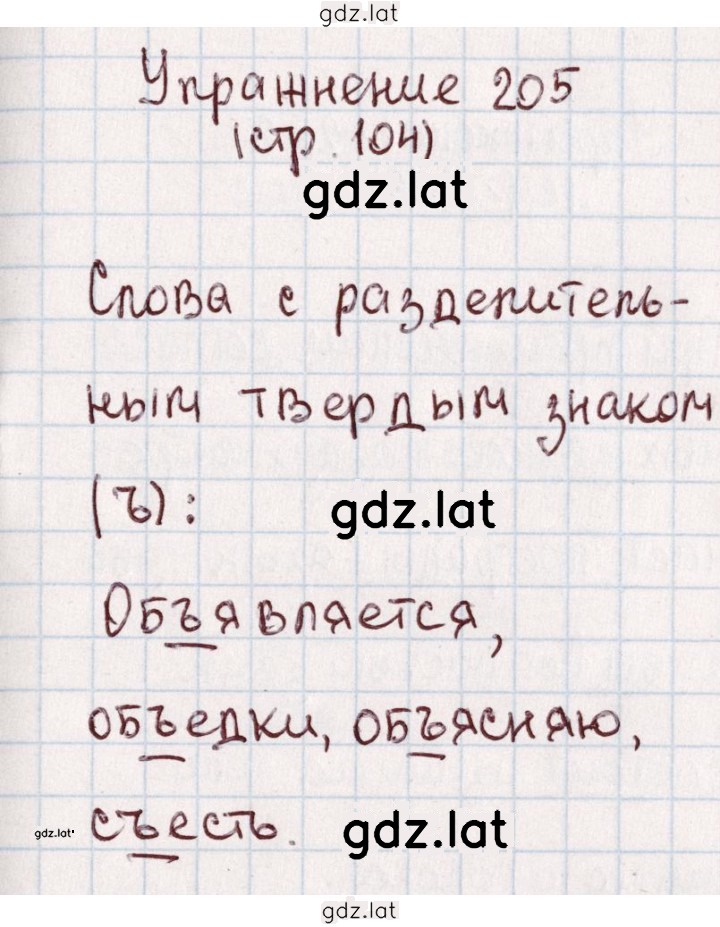 gdz.lat
Упражнение 205
(стр. 104)
gdz.lat
Слова с разделитель-
ным твердым знаком
(ъ): gdz.lat
Объявляется,
объедки, объясняю,
gdz.lat съесть. gdz.lat
gdz.lat